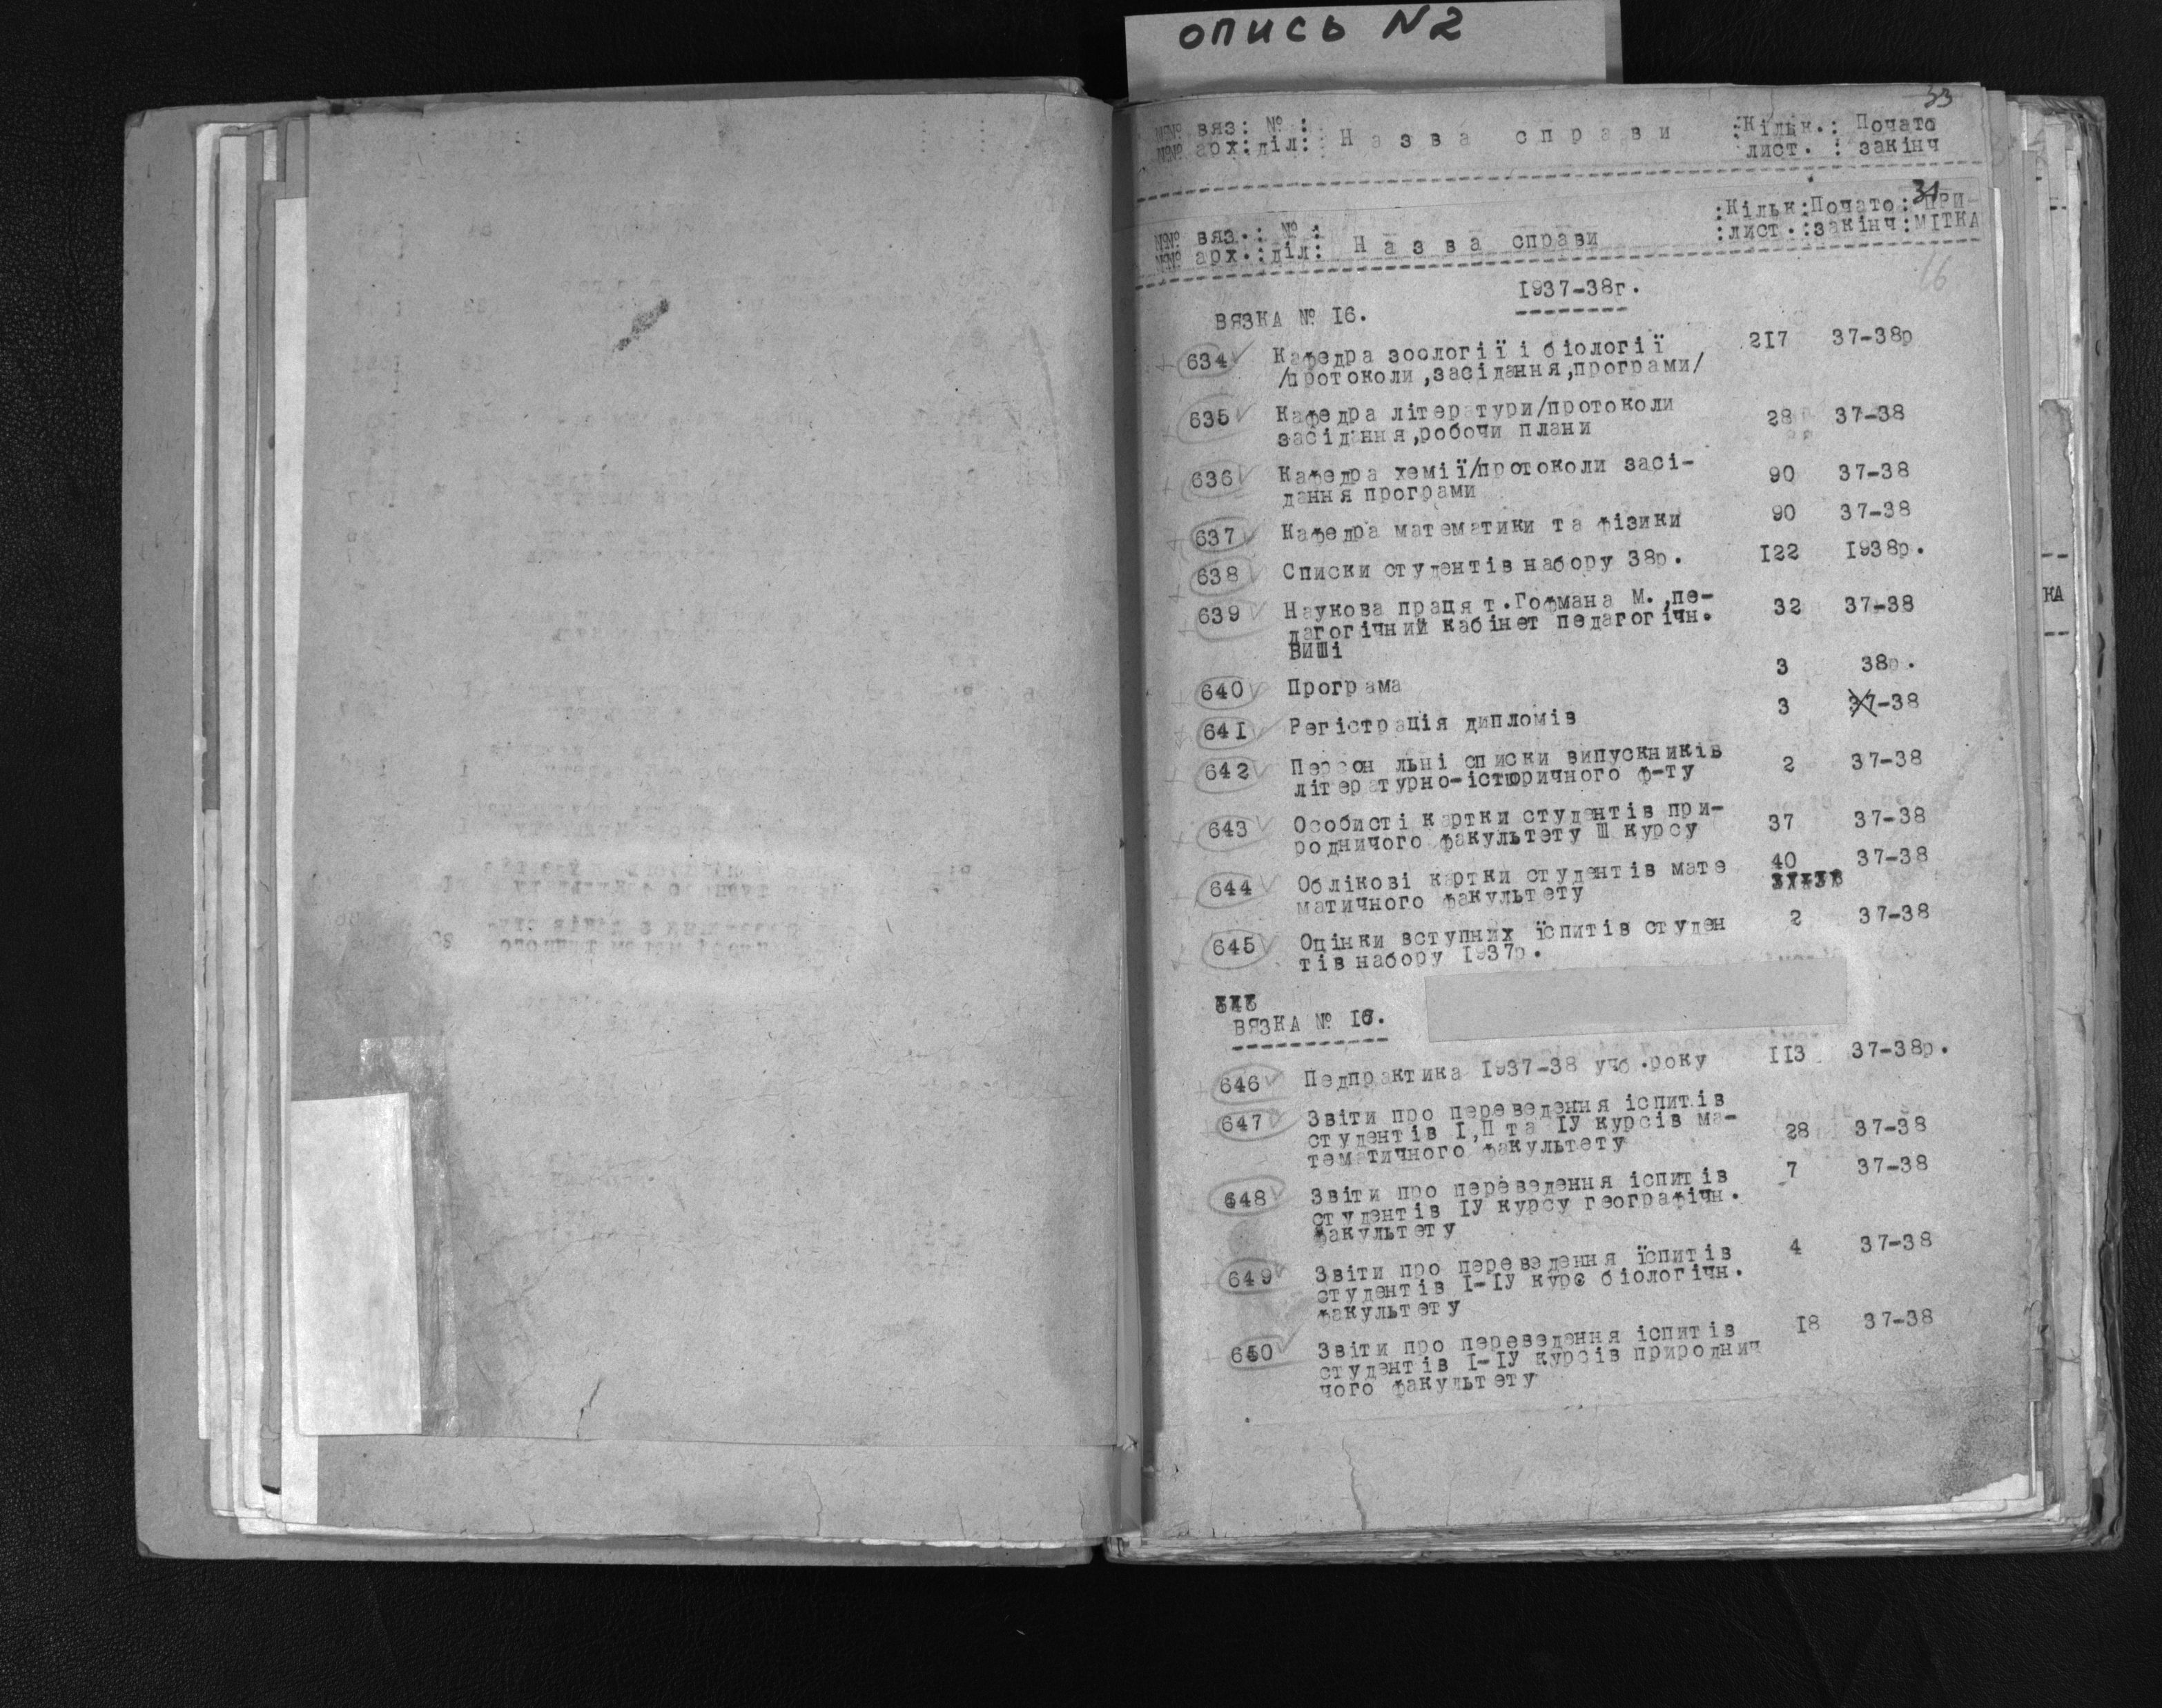 опись N2
33
№№ вяз: № : Назва справи :Кільк.: Почато
№№ арх:діл: лист. : закінч
31
№№ вяз.: № : Назва справи :Кільк:Почато:ПРИ-
№№ арх.:діл: :лист.:закінч:МІТКА
16
1937-38г.
ВЯЗКА № 16.
634 Кафедра зоології і біології 217 37-38р
/протоколи,засідання,програми/
635 Кафедра літератури/протоколи 28 37-38
засідання,робочи плани
636 Кафедра хемії/протоколи засі- 90 37-38
дання програми
637 Кафедра математики та фізики 90 37-38
638 Списки студентів набору 38р. 122 1938р.
639 Наукова праця т.Гофмана М.,пе- 32 37-38
дагогічний кабінет педагогічн.
виші
640 Програма 3 38р.
641 Регістрація дипломів 3 37-38
642 Персон льні списки випускників 2 37-38
літературно-історичного ф-ту
643 Особисті картки студентів при- 37 37-38
родничого факультету Ш курсу
644 Облікові картки студентів мате 40 37-38
матичного факультету
645 Оцінки вступних їспитів студен 2 37-38
тів набору 1937р.
ВЯЗКА № 16.
646 Педпрактика 1937-38 учб.року 113 37-38р.
647 Звіти про переведення іспитів
студентів І,П та ІУ курсів ма- 28 37-38
тематичного факультету
648 Звіти про переведення іспитів 7 37-38
студентів ІУ курсу географічн.
факультету
649 Звіти про переведення їспитів 4 37-38
студентів І-ІУ курс біологічн.
факультету
650 Звіти про переведення іспитів 18 37-38
студентів І-ІУ курсів природнич
чого факультету
КА